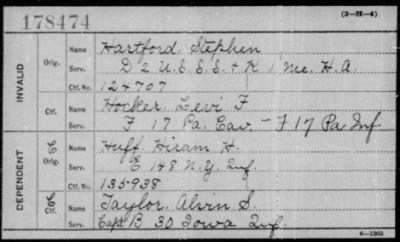 178474
(3-H-4)
INVALID
Orig.
Name Hartford, Stephen
Serv. D 2 U.S.S.S. & K 1 Me. H.A.
Ctf. No. 124707
Ctf.
Name Hocker, Levi F.
Serv. F 17 Pa. Cav. - F 17 Pa Inf
DEPENDENT
Orig.
Name Huff Hiram H.
Serv. E 148 N.Y. Inf.
Ctf. No. 135938
Ctf.
Name Taylor, Alvin S.
Serv. Capt B 30 Iowa Inf.